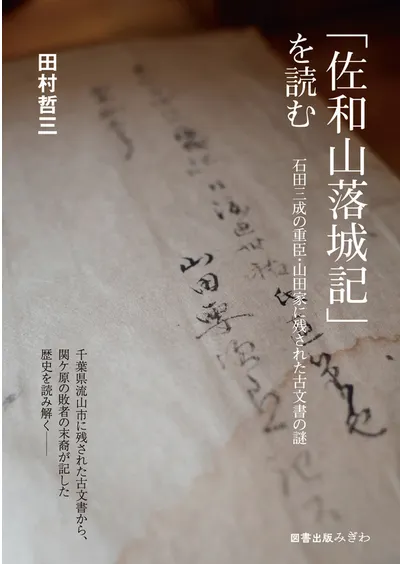 「佐和山落城記」
を読む
石田三成の重臣・山田家に残された古文書の謎
田村哲三
千葉県流山市に残された古文書から、
関ケ原の敗者の末裔が記した
歴史を読み解く――
図書出版みぎわ